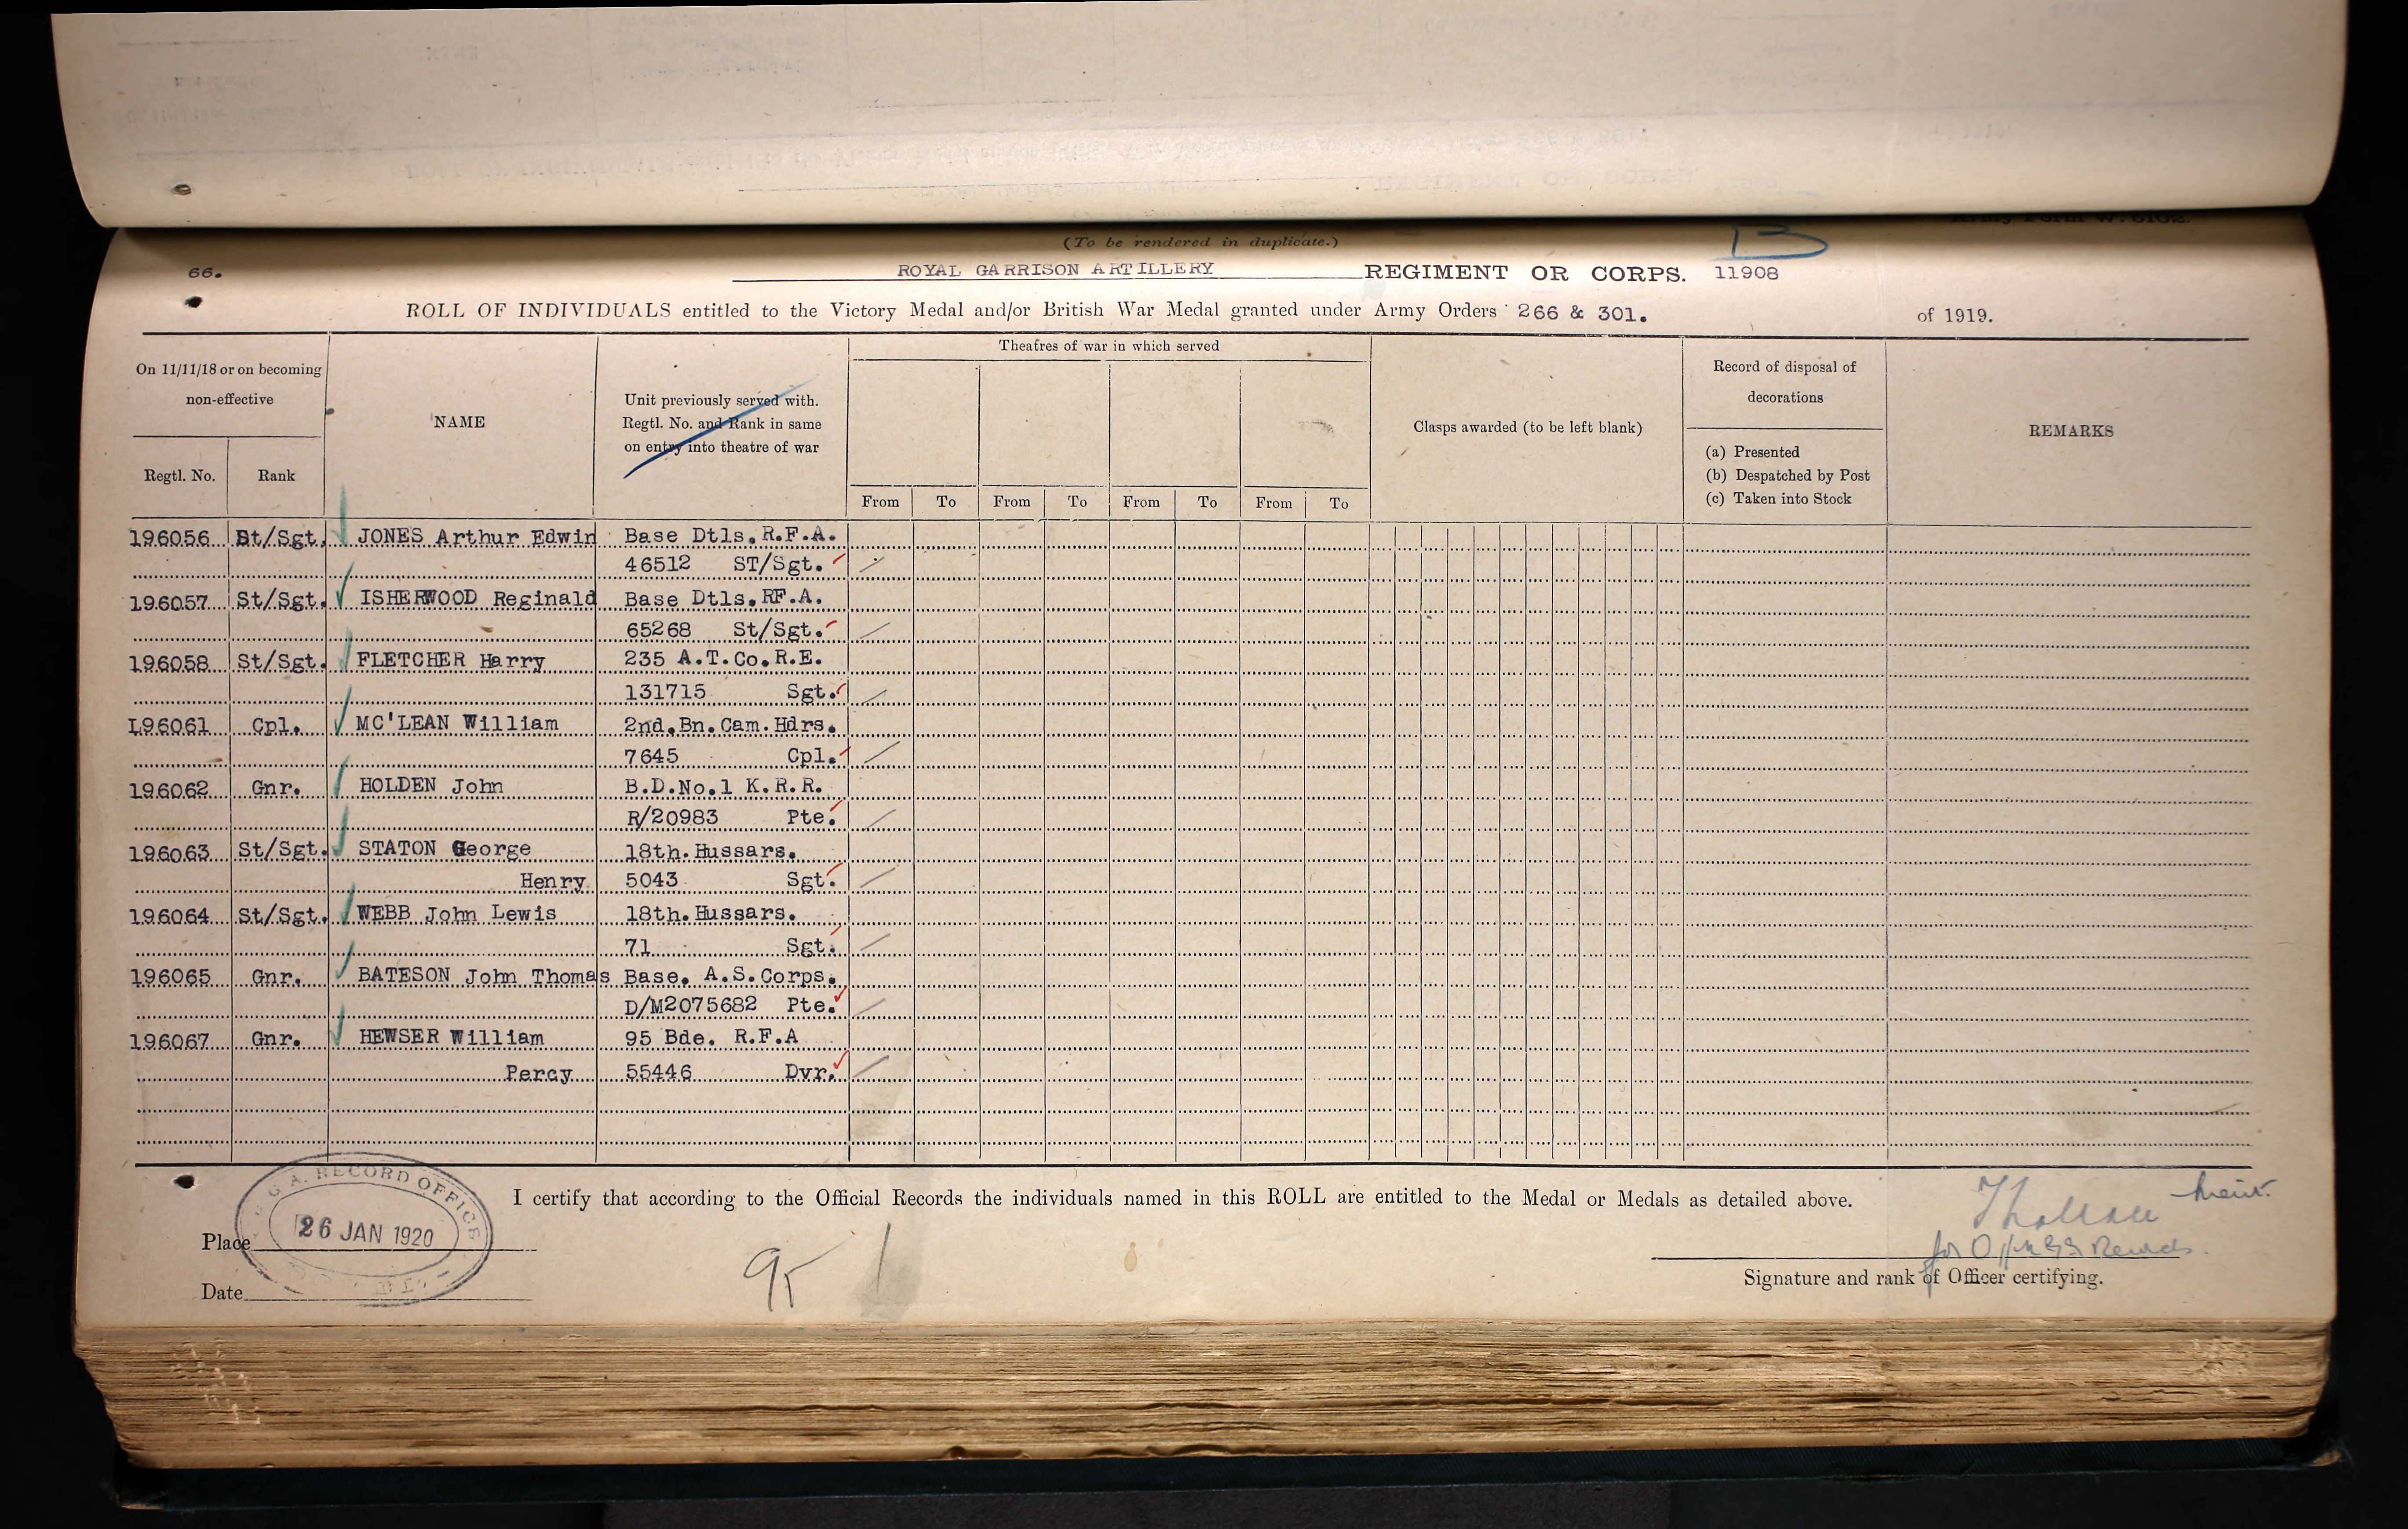 (To be rendered in duplicate.)
66. ROYAL GARRISON ARTILLERY REGIMENT OR CORPS. 11908
ROLL OF INDIVIDUALS entitled to the Victory Medal and/or British War Medal granted under Army Orders 266 & 301. of 1919.
On 11/11/18 or on becoming
non-effective
Regtl. No. Rank
NAME
Unit previously served with.
Regtl. No. and Rank in same
on entry into theatre of war
Theatres of war in which served
From To From To From To From To
Clasps awarded (to be left blank)
Record of disposal of
decorations
(a) Presented
(b) Despatched by Post
(c) Taken into Stock
REMARKS
196056 Bt/Sgt. JONES Arthur Edwin Base Dtls. R.F.A.
46512 ST/Sgt.
196057 St/Sgt. ISHERWOOD Reginald Base Dtls. RF.A.
65268 St/Sgt.
196058 St/Sgt. FLETCHER Harry 235 A.T.Co.R.E.
131715 Sgt.
L96061 Cpl. MC'LEAN William 2nd.Bn.Cam.Hdrs.
7645 Cpl.
196062 Gnr. HOLDEN John B.D.No.1 K.R.R.
R/20983 Pte.
196063 St/Sgt. STATON George 18th.Hussars.
Henry 5043 Sgt.
196064 St/Sgt. WEBB John Lewis 18th.Hussars.
71 Sgt.
196065 Gnr. BATESON John Thomas Base. A.S.Corps.
D/M2075682 Pte.
196067 Gnr. HEWSER William 95 Bde. R.F.A
Percy 55446 Dvr.
I certify that according to the Official Records the individuals named in this ROLL are entitled to the Medal or Medals as detailed above.
G.A. RECORD OFFICE
26 JAN 1920
Place
Date
95
Signature and rank of Officer certifying.